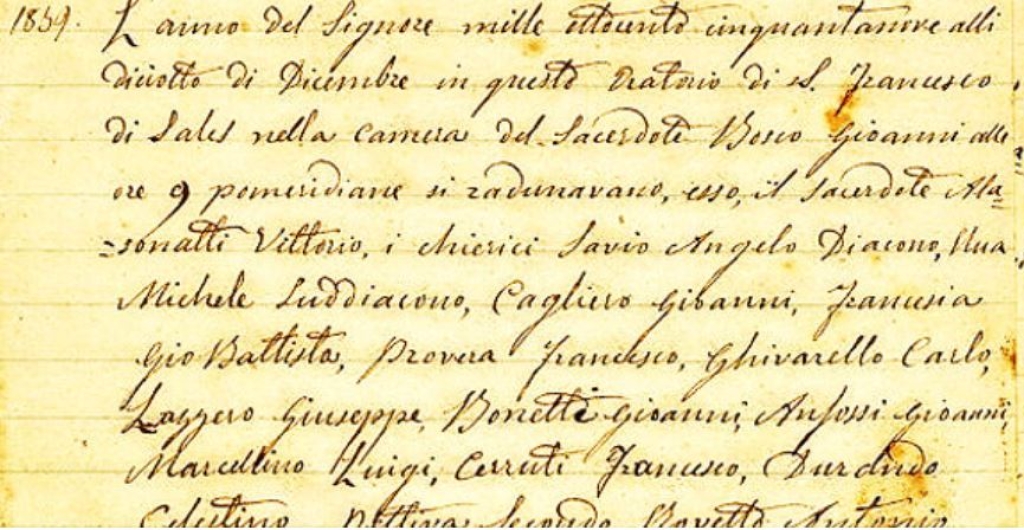 1859. L'anno del Signore mille ottocento cinquantanove alli
diciotto di Dicembre in questo Oratorio di S. Francesco
di Sales nella Camera del Sacerdote Bosco Gioanni alle
ore 9 pomeridiane si radunavano, esso, il Sacerdote Ala=
=sonatti Vittorio, i chierici Savio Angelo Diacono, Rua
Michele Suddiacono, Cagliero Gioanni, Francesia
Gio Battista, Provera Francesco, Ghivarello Carlo,
Lazzero Giuseppe, Bonetti Gioanni, Anfossi Gioanni,
Marcellino Luigi, Cerruti Francesco, Durando
Celestino Pettiva Secondo Rovetto Antonio